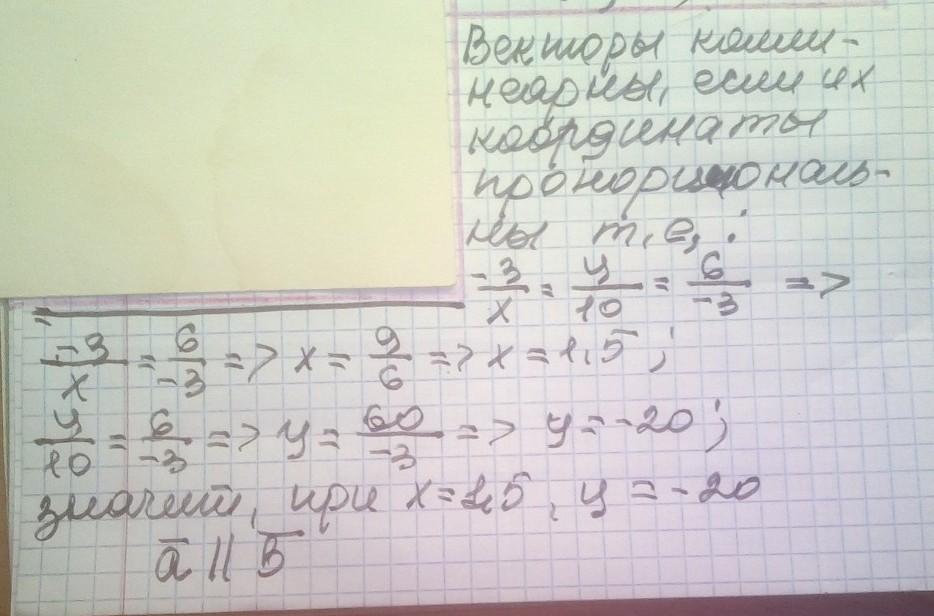 Векторы колли-
неарны, если их
координаты
пропорциональ-
ны т.е. :
-3/x = y/10 = 6/-3 =>
-3/x = 6/-3 => x = 9/6 => x = 1,5 ;
y/10 = 6/-3 => y = 60/-3 => y = -20 ;
значит, при x = 1,5 , y = -20
a̅ || b̅